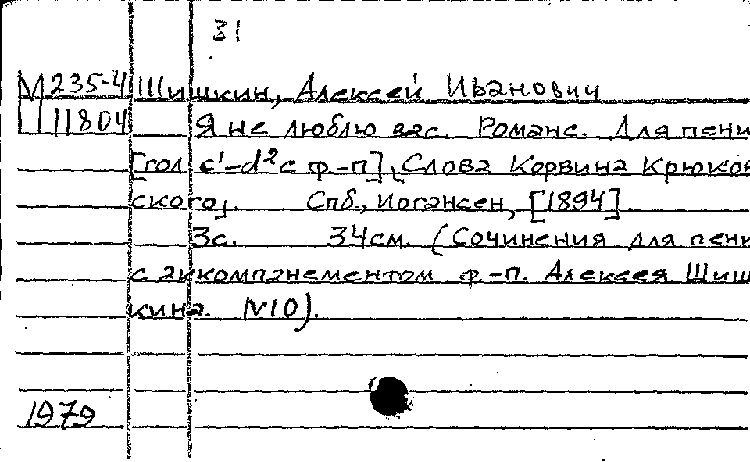 31
М 235-4 Шишкин, Алексей Иванович
Ш 11804 Я не люблю вас. Романс. Для пени
[гол. c'-d² с ф-п], Слова Корвина Крюков
ского, Спб., Иогансен, [1894]
3с. 34см. (Сочинения для пени
с аккомпанементом ф-п. Алексея Шиш
кина. N10).
1979